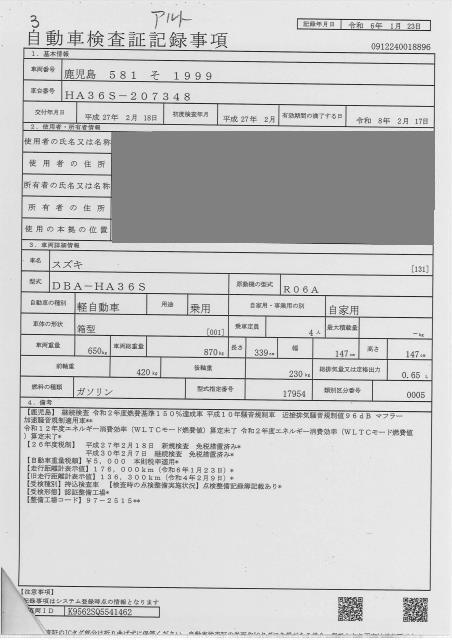 3
アルト
記録年月日 令和 6年 1月 23日
自動車検査証記録事項
0912240018896
1. 基本情報
車両番号 鹿児島 581 そ 1999
車台番号 HA36S-207348
交付年月日 平成 27年 2月 18日 初度検査年月 平成 27年 2月 有効期間の満了する日 令和 8年 2月 17日
2. 使用者・所有者情報
使用者の氏名又は名称
使用者の住所
所有者の氏名又は名称
所有者の住所
使用の本拠の位置
3. 車両詳細情報
車名 スズキ [131]
型式 DBA-HA36S 原動機の型式 R06A
自動車の種別 軽自動車 用途 乗用 自家用・事業用の別 自家用
車体の形状 箱型 [001] 乗車定員 4人 最大積載量 -kg
車両重量 650kg 車両総重量 870kg 長さ 339cm 幅 147cm 高さ 147cm
前軸重 420kg 後軸重 230kg 総排気量又は定格出力 0.65L
燃料の種類 ガソリン 型式指定番号 17954 類別区分番号 0005
4. 備考
【鹿児島】 継続検査 令和2年度燃費基準150%達成車 平成10年騒音規制車 近接排気騒音規制値96dB マフラー
加速騒音規制適用車**
令和12年度エネルギー消費効率(WLTCモード燃費値)算定未了 令和2年度エネルギー消費効率(WLTCモード燃費値
)算定未了*
【26年度税制】 平成27年2月18日 新規検査 免税措置済み*
平成30年2月7日 継続検査 免税措置済み*
【自動車重量税額】¥5,000 本則税率適用*
【走行距離計表示値】176,000km(令和6年1月23日)*
【旧走行距離計表示値】136,300km(令和4年2月9日)*
【受検種別】持込検査車 【検査時の点検整備実施状況】点検整備記録簿記載あり*
【受検形態】認証整備工場*
【整備工場コード】97-2515**
【注意事項】
記録事項はシステム登録時点の情報となります
車両ID K9562SQ5541462